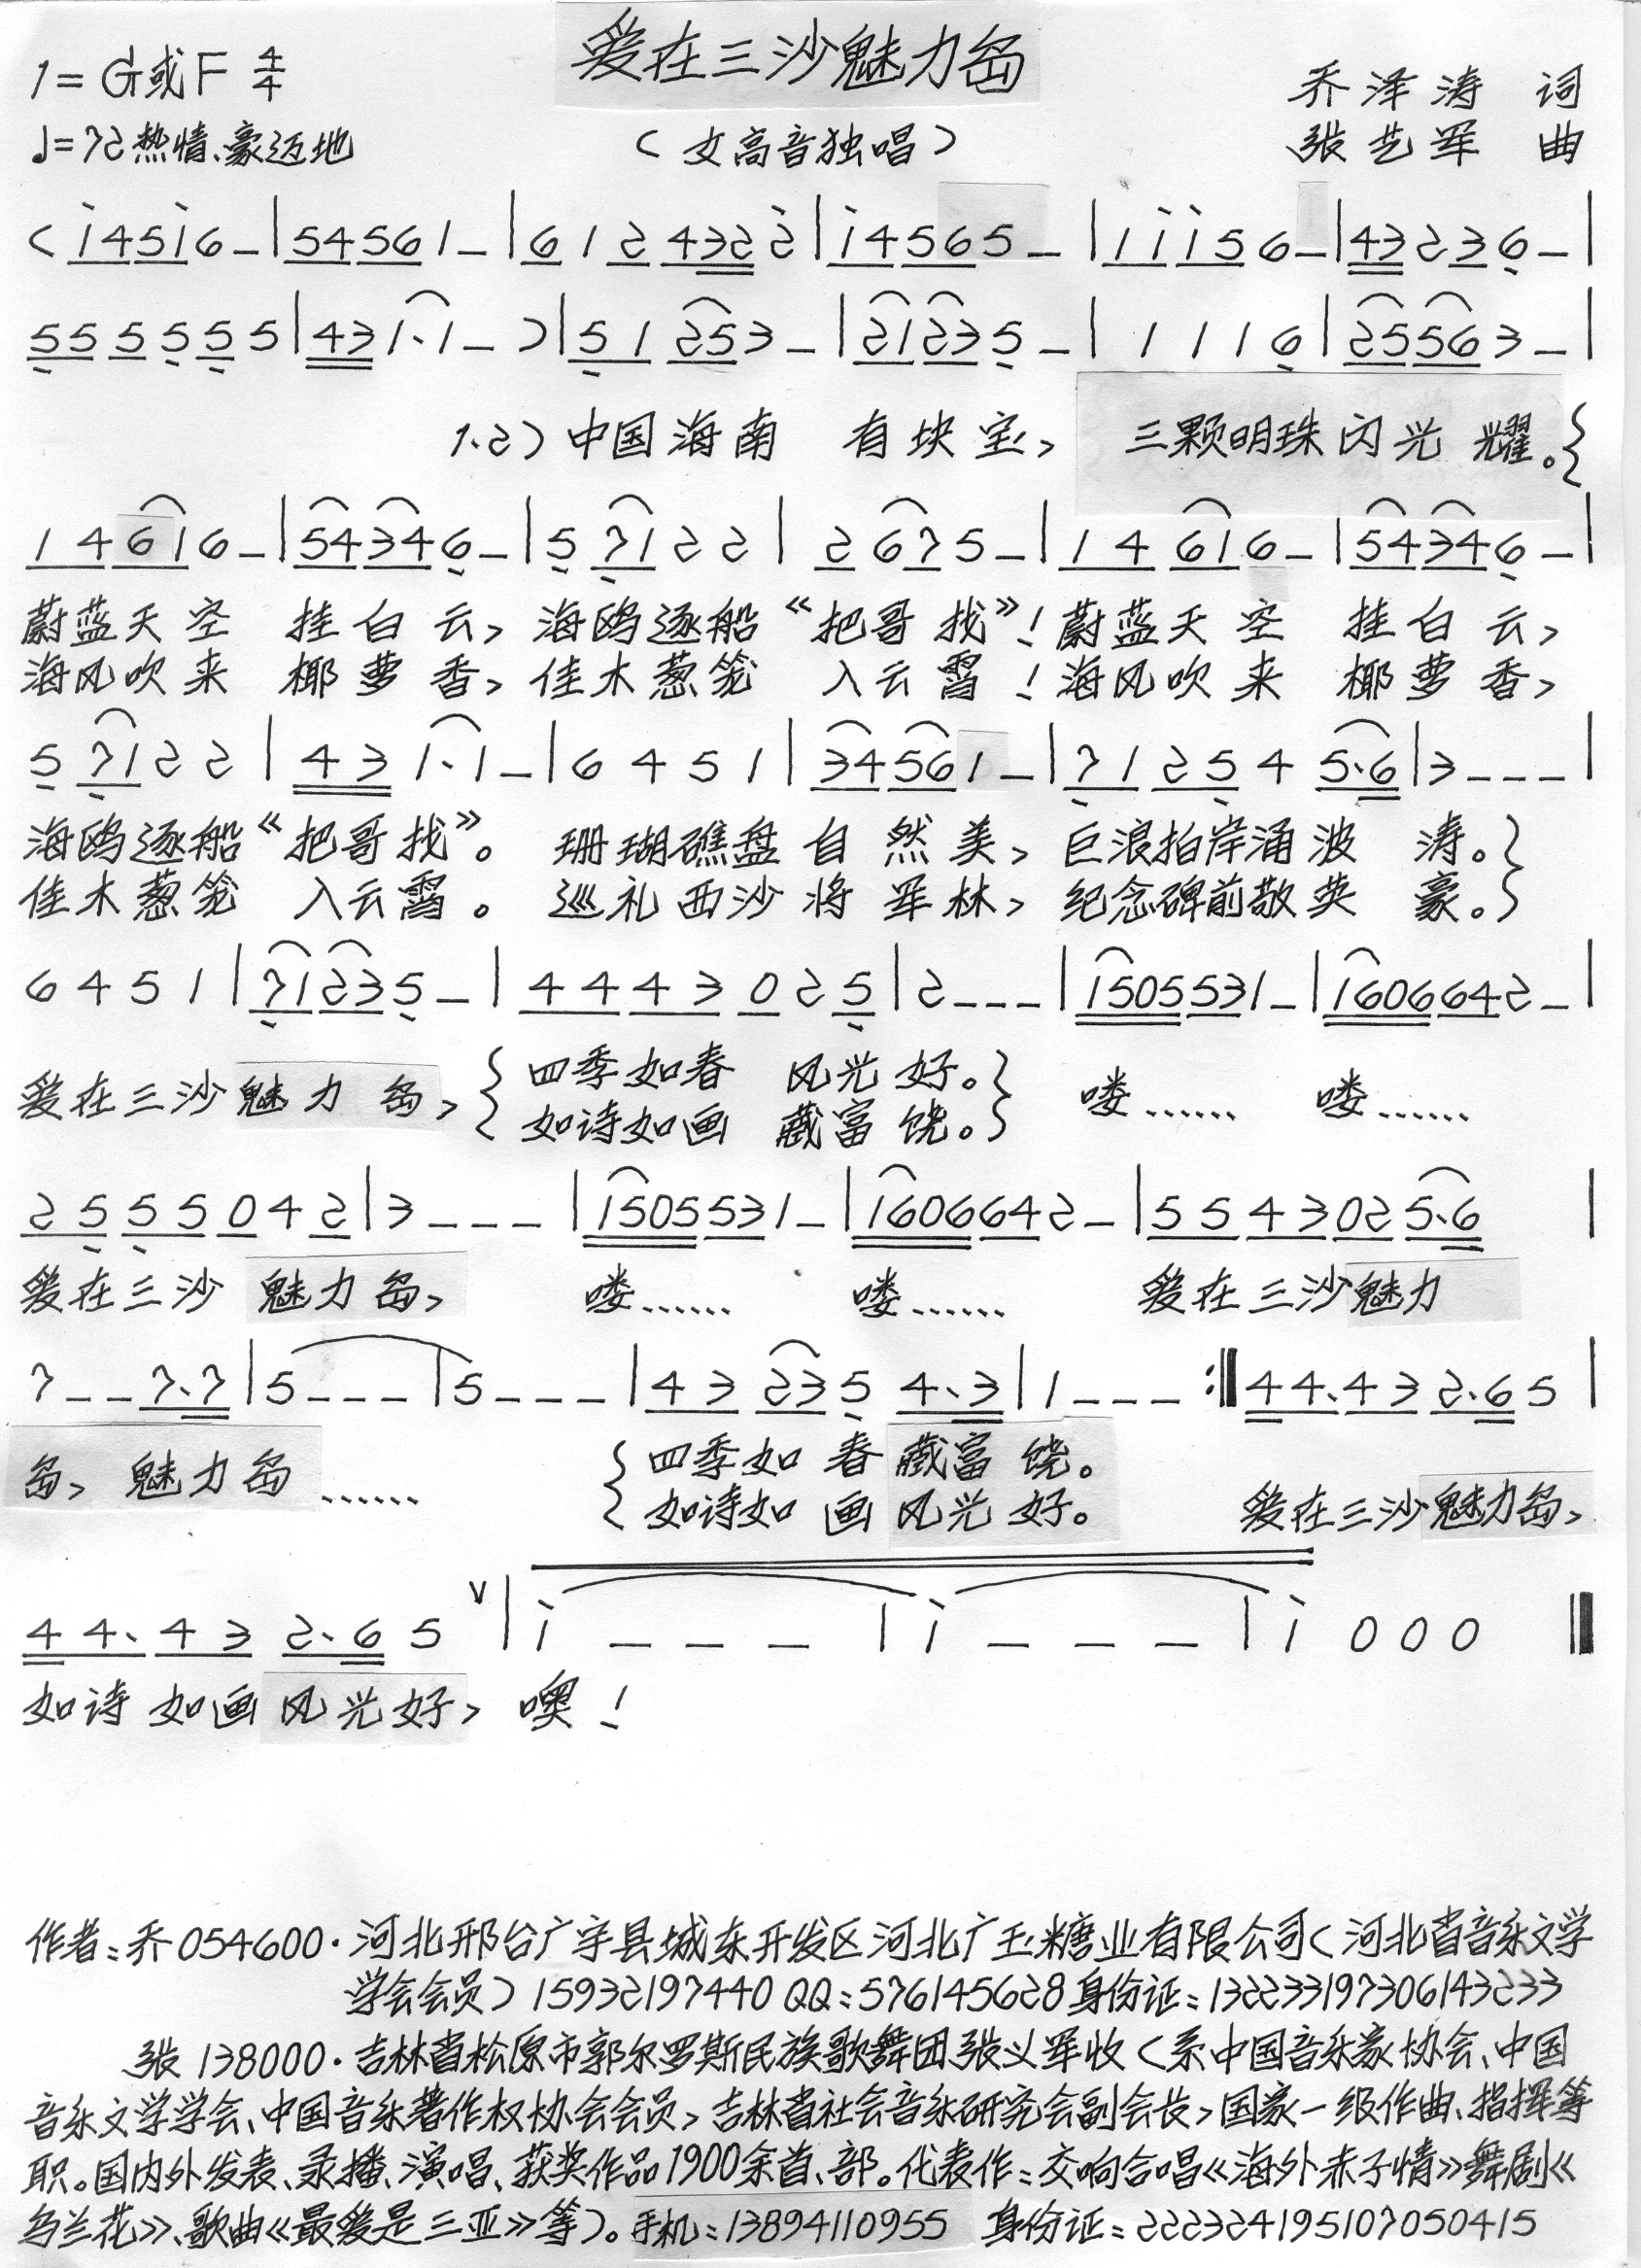 爱在三沙魅力岛
1=G或F 4/4
乔泽涛 词
♩=72热情、豪迈地
(女高音独唱)
张艺军 曲
(i45i6-|54561-|6124322|i4565-|1ii56-|43236-|
5555555|431·1-)|51253-|21235-|1116|25563-|
1.2)中国海南 有块宝, 三颗明珠闪光耀。{
14616-|54346-|57122|2675-|14616-|54346-|
蔚蓝天空 挂白云,海鸥逐船“把哥找”!蔚蓝天空 挂白云,
海风吹来 椰萝香,佳木葱笼 入云霄!海风吹来 椰萝香,
57122|431·1-|6451|34561-|712545·6|3---|
海鸥逐船“把哥找”。 珊瑚礁盘自然美,巨浪拍岸涌波涛。}
佳木葱笼 入云霄。 巡礼西沙将军林,纪念碑前敬英豪。}
6451|71235-|4443025|2---|1505531-|1606642-|
爱在三沙魅力岛,{四季如春 风光好。} 喽…… 喽……
{如诗如画 藏富饶。}
2555042|3---|1505531-|1606642-|5543025·6|
爱在三沙 魅力岛, 喽…… 喽…… 爱在三沙魅力
7--7·7|5---|5---|432354·3|1---:‖44·432·65|
岛,魅力岛…… {四季如春藏富饶。
{如诗如画风光好。 爱在三沙魅力岛,
44·432·65 ∨|i---|i---|i000‖
如诗如画风光好,噢!
作者:乔054600·河北邢台广宇县城东开发区河北广玉糖业有限公司(河北省音乐文学
学会会员)15932197440 QQ:576145628身份证:132233197306143233
张138000·吉林省松原市郭尔罗斯民族歌舞团张义军收(系中国音乐家协会、中国
音乐文学学会、中国音乐著作权协会会员,吉林省社会音乐研究会副会长,国家一级作曲、指挥等
职。国内外发表、录播、演唱、获奖作品1900余首、部。代表作:交响合唱《海外赤子情》舞剧《
乌兰花》、歌曲《最爱是三亚》等)。手机:13894110955 身份证:222324195107050415